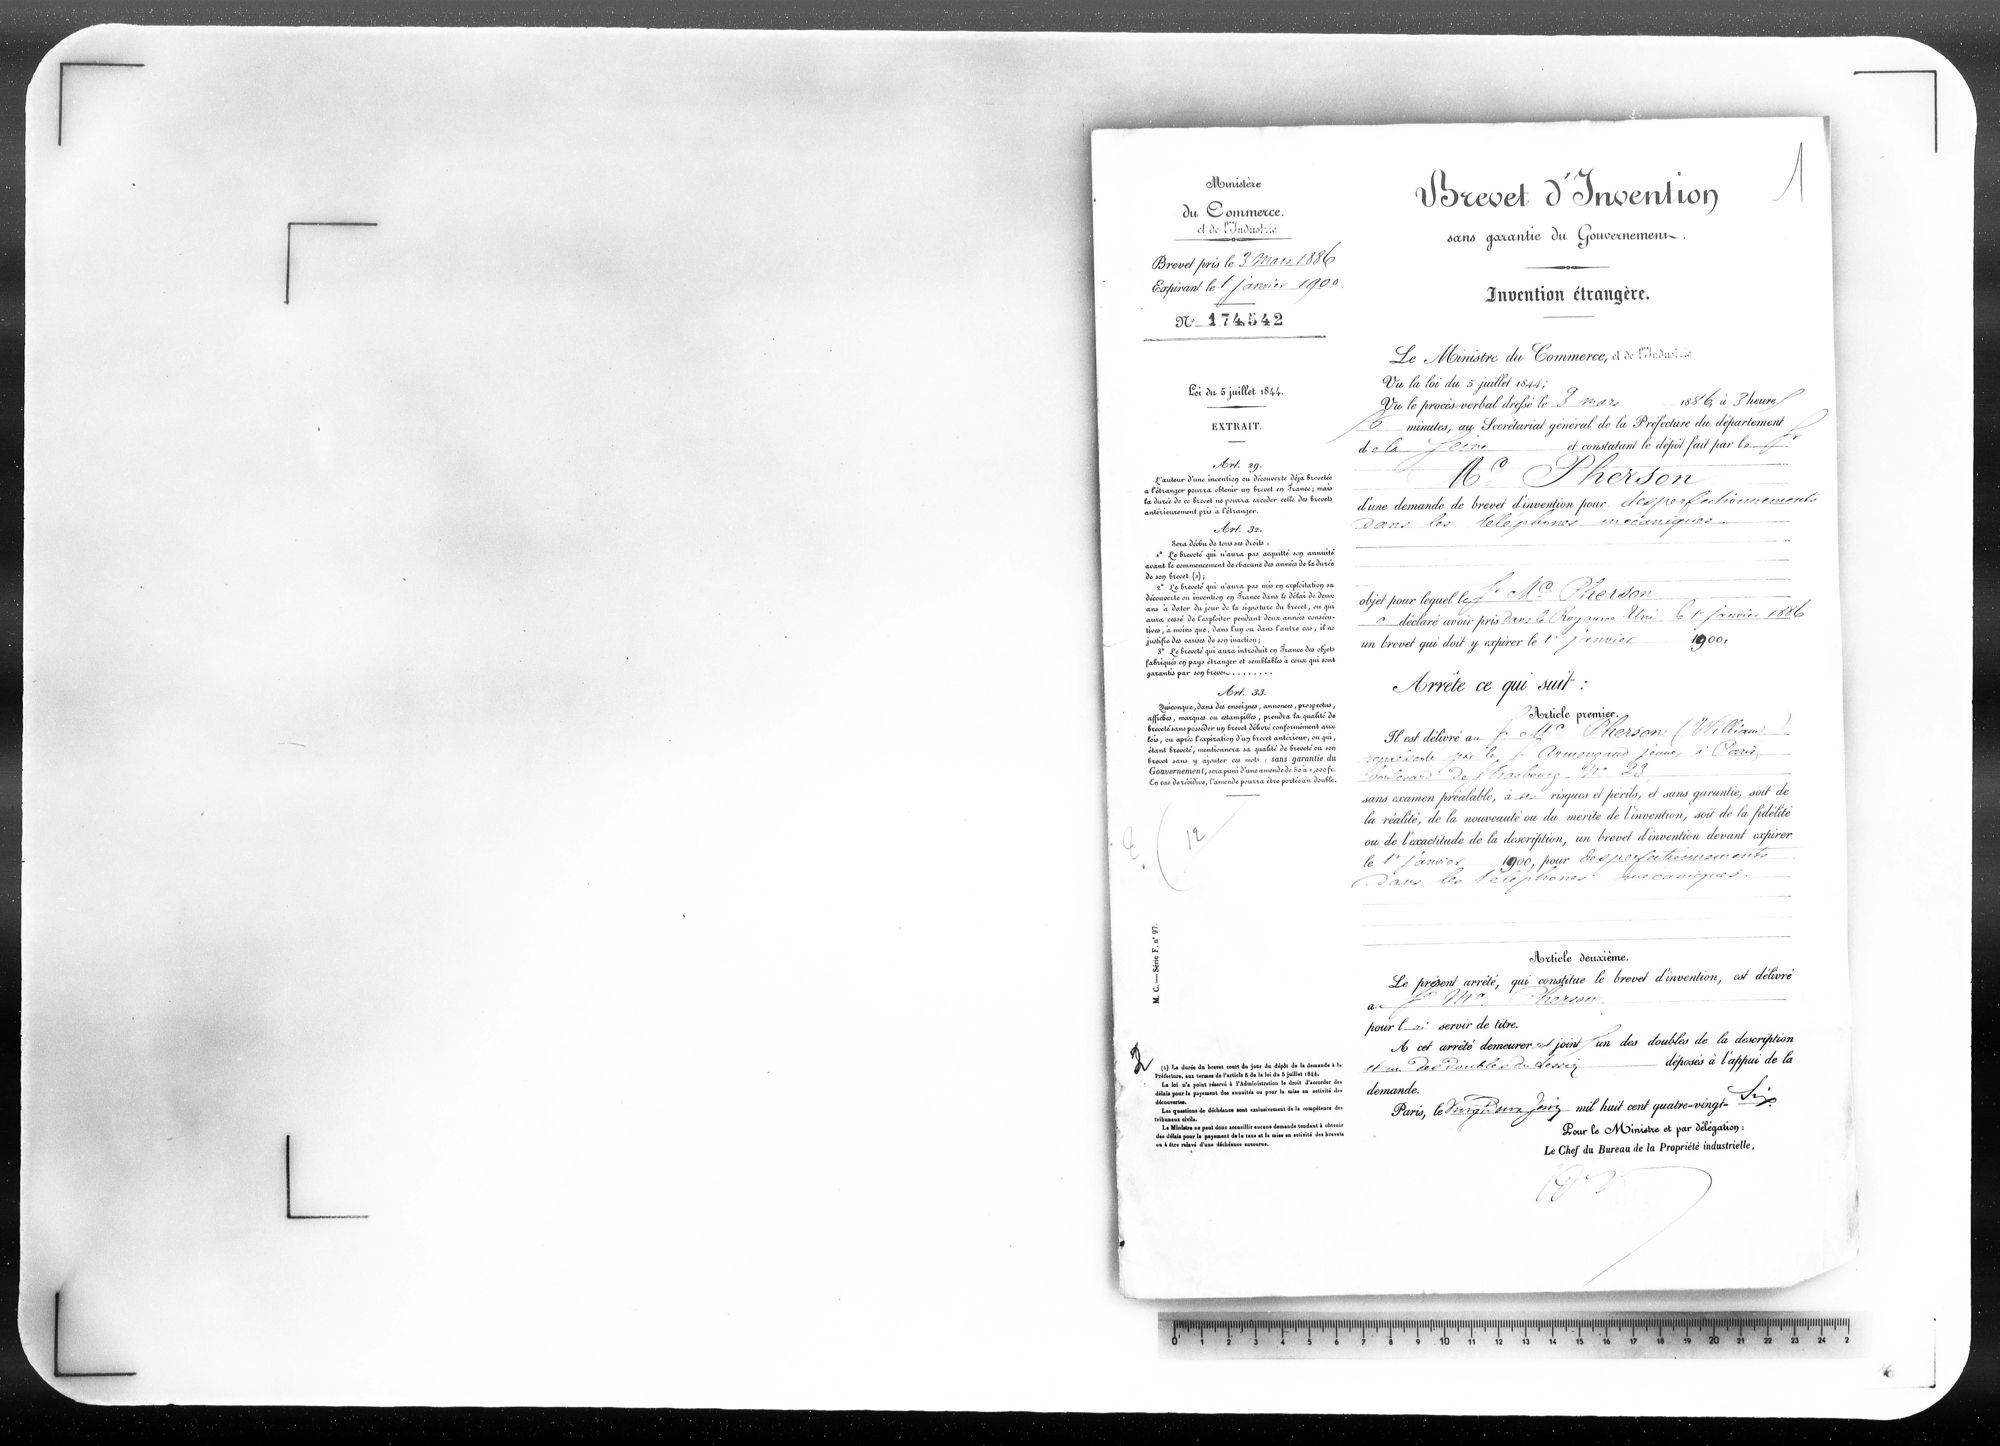 Ministère
du Commerce.
et de l'Industrie
Brevet pris le 3 Mars 1886
Expirant le 1er janvier 1900.
N° 174,542
Loi du 5 juillet 1844.
EXTRAIT.
Art. 29.
L'auteur d'une invention ou découverte déjà brevetée
à l'étranger pourra obtenir un brevet en France; mais
la durée de ce brevet ne pourra excéder celle des brevets
antérieurement pris à l'étranger.
Art. 32.
Sera déchu de tous ses droits :
1° Le breveté qui n'aura pas acquitté son annuité
avant le commencement de chacune des années de la durée
de son brevet (1);
2° Le breveté qui n'aura pas mis en exploitation sa
découverte ou invention en France dans le délai de deux
ans à dater du jour de la signature du brevet, ou qui
aura cessé de l'exploiter pendant deux années consécu-
tives, à moins que, dans l'un ou dans l'autre cas, il ne
justifie des causes de son inaction;
3° Le breveté qui aura introduit en France des objets
fabriqués en pays étranger et semblables à ceux qui sont
garantis par son brevet........
Art. 33.
Quiconque, dans des enseignes, annonces, prospectus,
affiches, marques ou estampilles, prendra la qualité de
breveté sans posséder un brevet délivré conformément aux
lois, ou après l'expiration d'un brevet antérieur, ou qui,
étant breveté, mentionnera sa qualité de breveté ou son
brevet sans y ajouter ces mots : sans garantie du
Gouvernement, sera puni d'une amende de 50 à 1,000 fr.
En cas de récidive, l'amende pourra être portée au double.
12
M. C. — Série F. n° 97.
2
(1) La durée du brevet court du jour du dépôt de la demande à la
Préfecture, aux termes de l'article 8 de la loi du 5 juillet 1844.
La loi n'a point réservé à l'Administration le droit d'accorder des
délais pour le payement des annuités ou pour la mise en activité des
découvertes.
Les questions de déchéance sont exclusivement de la compétence des
tribunaux civils.
Le Ministre ne peut donc accueillir aucune demande tendant à obtenir
des délais pour le payement de la taxe et la mise en activité des brevets
ou à être relevé d'une déchéance encourue.
1
Brevet d'Invention
sans garantie du Gouvernement.
Invention étrangère.
Le Ministre du Commerce, et de l'Industrie
Vu la loi du 5 juillet 1844;
Vu le procès-verbal dressé le 3 mars 1886, à 3 heures
minutes, au Secrétariat général de la Préfecture du département
de la Seine et constatant le dépôt fait par le Sr
Mc Pherson
d'une demande de brevet d'invention pour des perfectionnements
dans les téléphones mécaniques.
objet pour lequel le Sr Mc Pherson
a déclaré avoir pris dans le Royaume Uni le 1er janvier 1886
un brevet qui doit y expirer le 1er janvier 1900,
Arrête ce qui suit :
Article premier.
Il est délivré au Sr Mc Pherson (William)
représenté par le Sr Armengaud jeune, à Paris,
boulevard de Strasbourg N° 23
sans examen préalable, à ses risques et périls, et sans garantie, soit de
la réalité, de la nouveauté ou du mérite de l'invention, soit de la fidélité
ou de l'exactitude de la description, un brevet d'invention devant expirer
le 1er janvier 1900, pour des perfectionnements
dans les téléphones mécaniques.
Article deuxième.
Le présent arrêté, qui constitue le brevet d'invention, est délivré
au Sr Mc Pherson
pour lui servir de titre.
A cet arrêté demeurera joint un des doubles de la description
et un des doubles du dessin déposés à l'appui de la
demande.
Paris, le Vingt deux Juin mil huit cent quatre-vingt-Six
Pour le Ministre et par délégation :
Le Chef du Bureau de la Propriété industrielle,
0 1 2 3 4 5 6 7 8 9 10 11 12 13 14 15 16 17 18 19 20 21 22 23 24 2